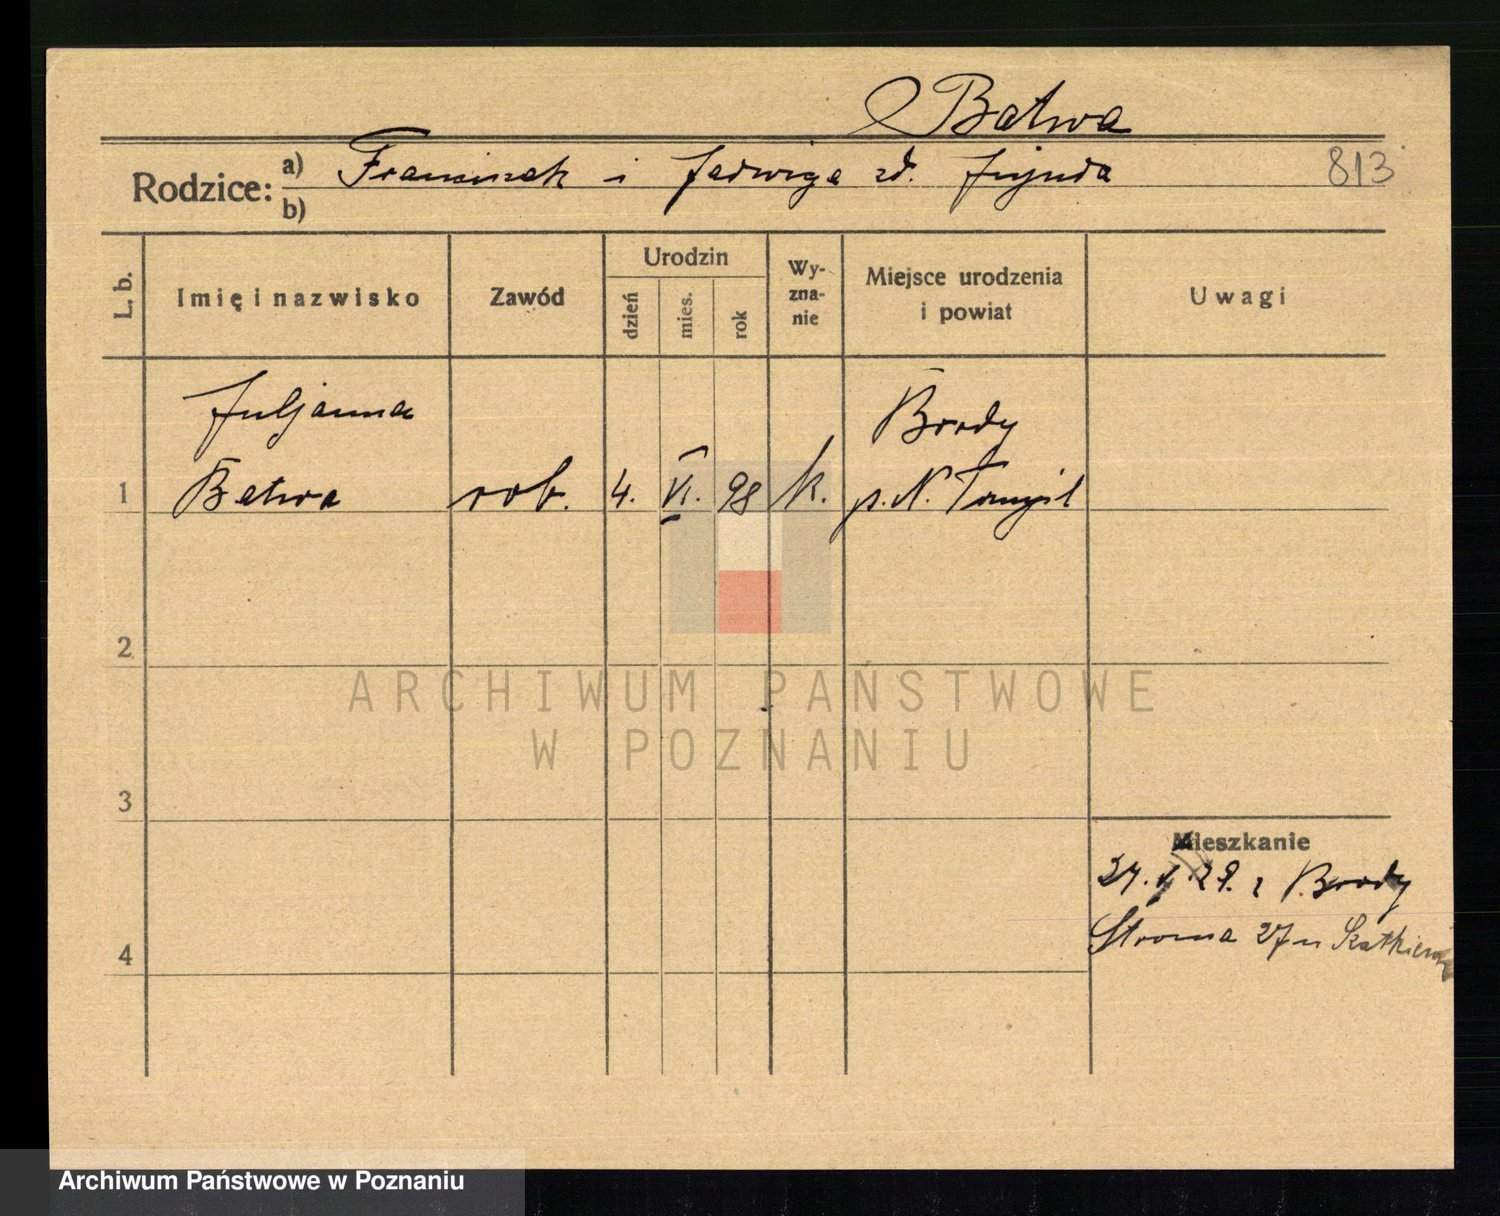 Batwa
813
Rodzice: a) Franciszek i Jadwiga zd.
b)
L. b.
Imię i nazwisko
Zawód
Urodzin
dzień
mies.
rok
Wy-
zna-
nie
Miejsce urodzenia
i powiat
Uwagi
Juljanna
Brody
1 Batwa rob. 4. VI. 98 k. p. N. Tomyśl
2
3
4
Mieszkanie
29. z Brody
Stroma 27
ARCHIWUM PAŃSTWOWE
W POZNANIU
Archiwum Państwowe w Poznaniu